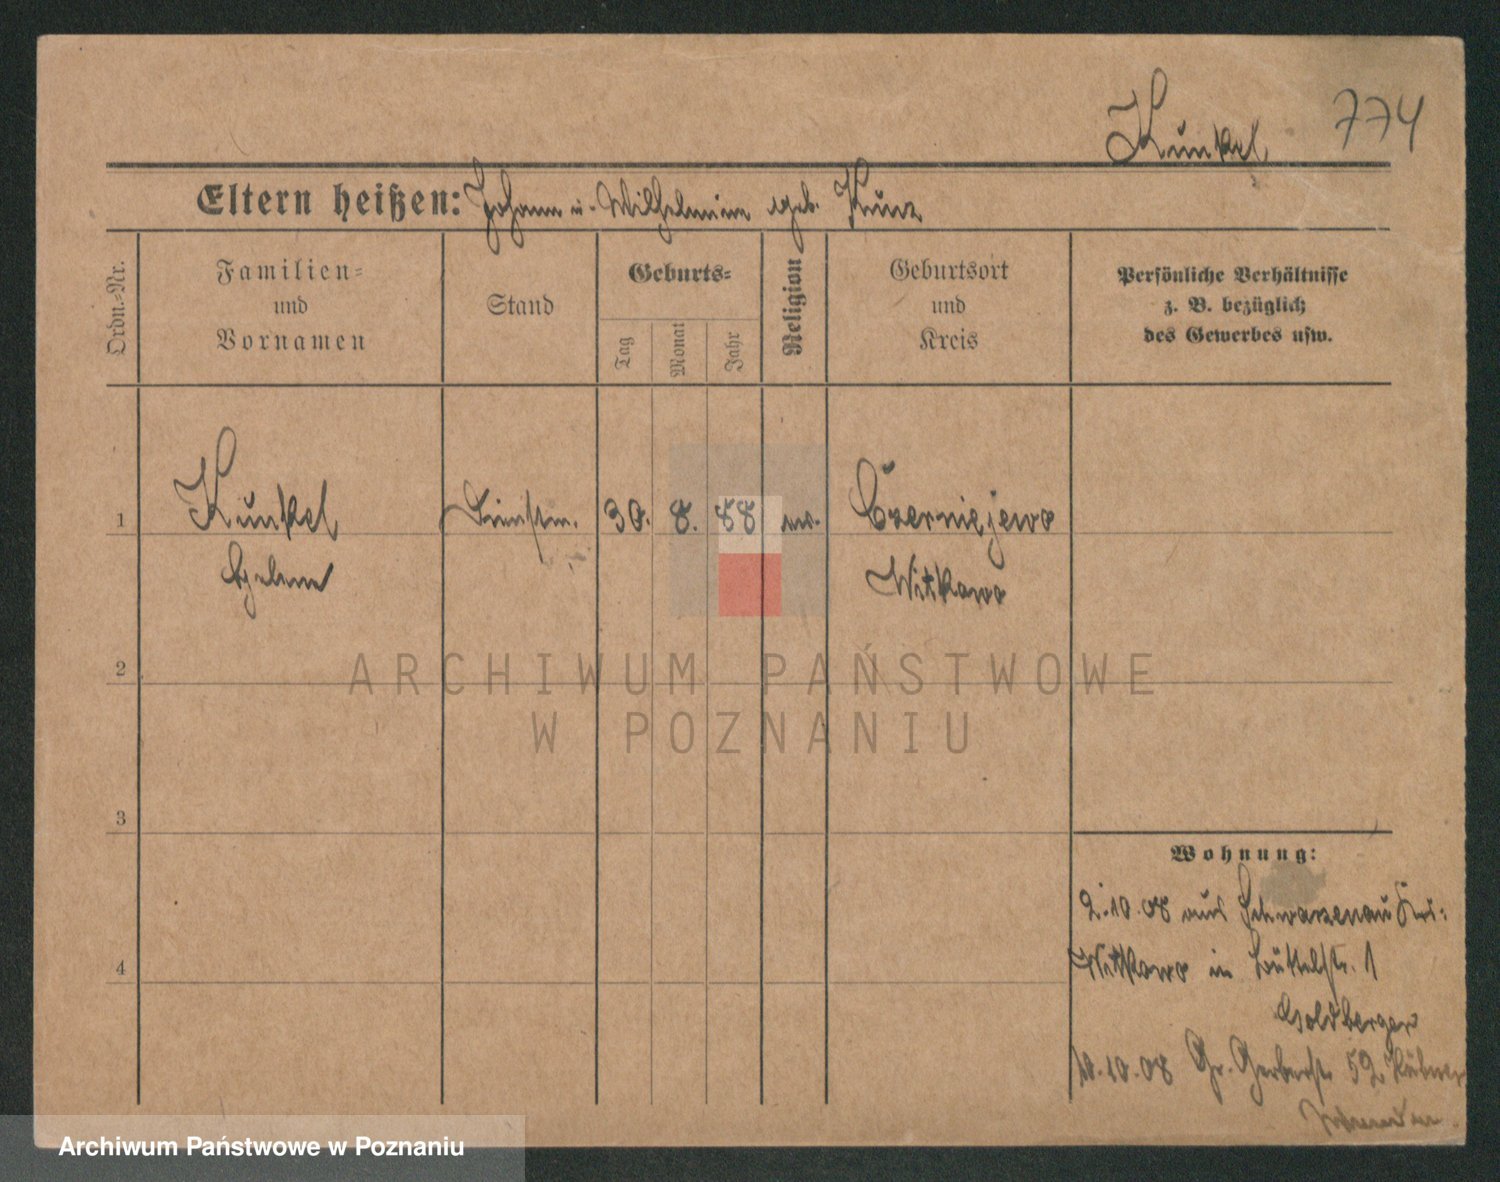 774
Kunkel
Eltern heißen: Johann u. Wilhelmine geb.
Ordn.-Nr.
Familien-
und
Vornamen
Stand
Geburts-
Tag
Monat
Jahr
Religion
Geburtsort
und
Kreis
Persönliche Verhältnisse
z. B. bezüglich
des Gewerbes usw.
1
Kunkel
Helene
30. 8. 88
ev.
Czerniejewo
Witkowo
2
ARCHIWUM PAŃSTWOWE
W POZNANIU
3
Wohnung:
2.10.08 aus Schwarzenau Krs:
Witkowo in Büttelstr. 1
Goldberger
10.10.08 Gr. Gerberstr. 52
4
Archiwum Państwowe w Poznaniu